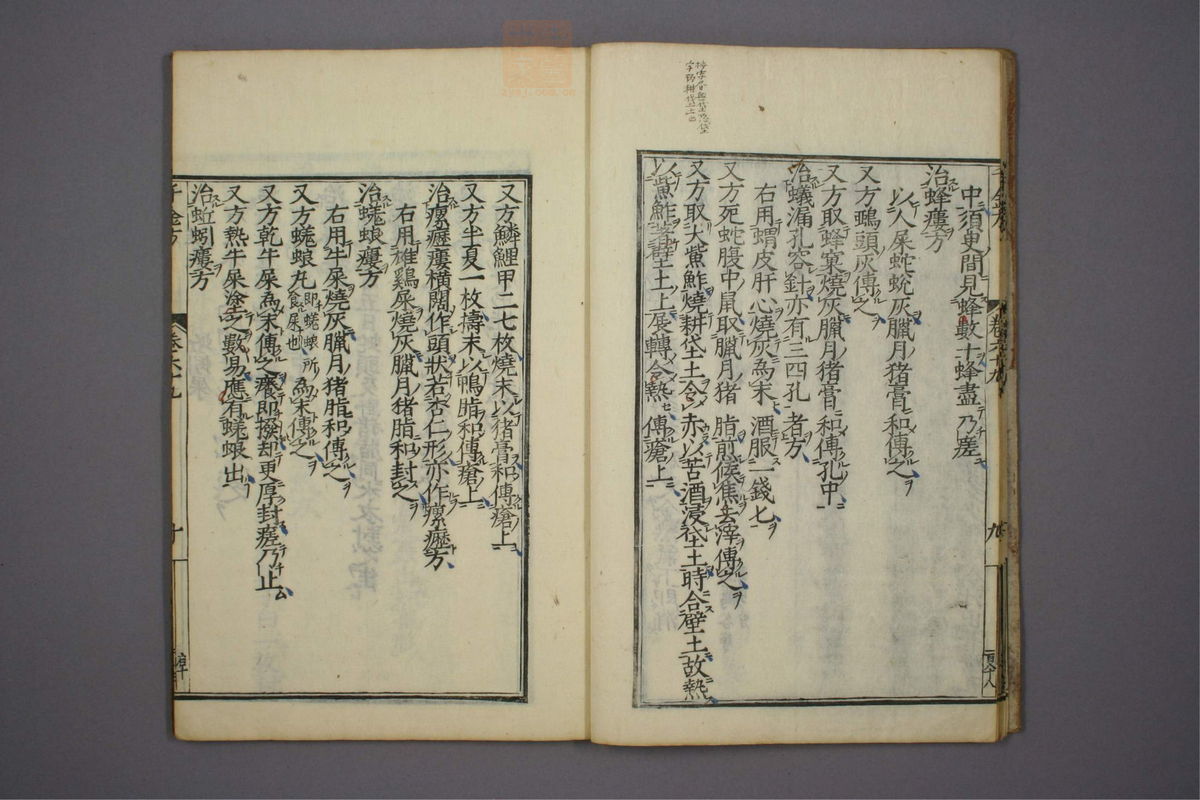 中須臾間見蜂數十蜂盡乃瘥
治蜂瘻方
以人屎蛇蛻灰臘月猪膏和傅之
又方鴟頭灰傅之
又方取蜂窠燒灰臘月猪膏和傅孔中
治蟻漏孔容針亦有三四孔者方
右用蝟皮肝心燒灰為末酒服一錢匕
又方死蛇腹中鼠取臘月猪脂煎候焦去滓傅之
又方取大鮆鮓燒耕垡土令赤以苦酒浸垡土時合壁土故熱
以鮆鮓著壁土上展轉令熱傅瘡上
又方鱗鯉甲二七枚燒末以猪膏和傅瘡上
又方半夏一枚擣末以鴨脂和傅瘡上
治瘰癧瘻橫闊作頭狀若杏仁形亦作瘰癧方
右用雄鷄屎燒灰臘月猪脂和封之
治蜣蜋瘻方
右用牛屎燒灰臘月猪脂和傅之
又方蜣蜋丸即蜣蜋所食屎也為末傅之
又方乾牛屎為末傅之癢即撥却更厚封瘥乃止
又方熱牛屎塗之數易應有蜣蜋出
治蚯蚓瘻方
千金方
卷六十九
十